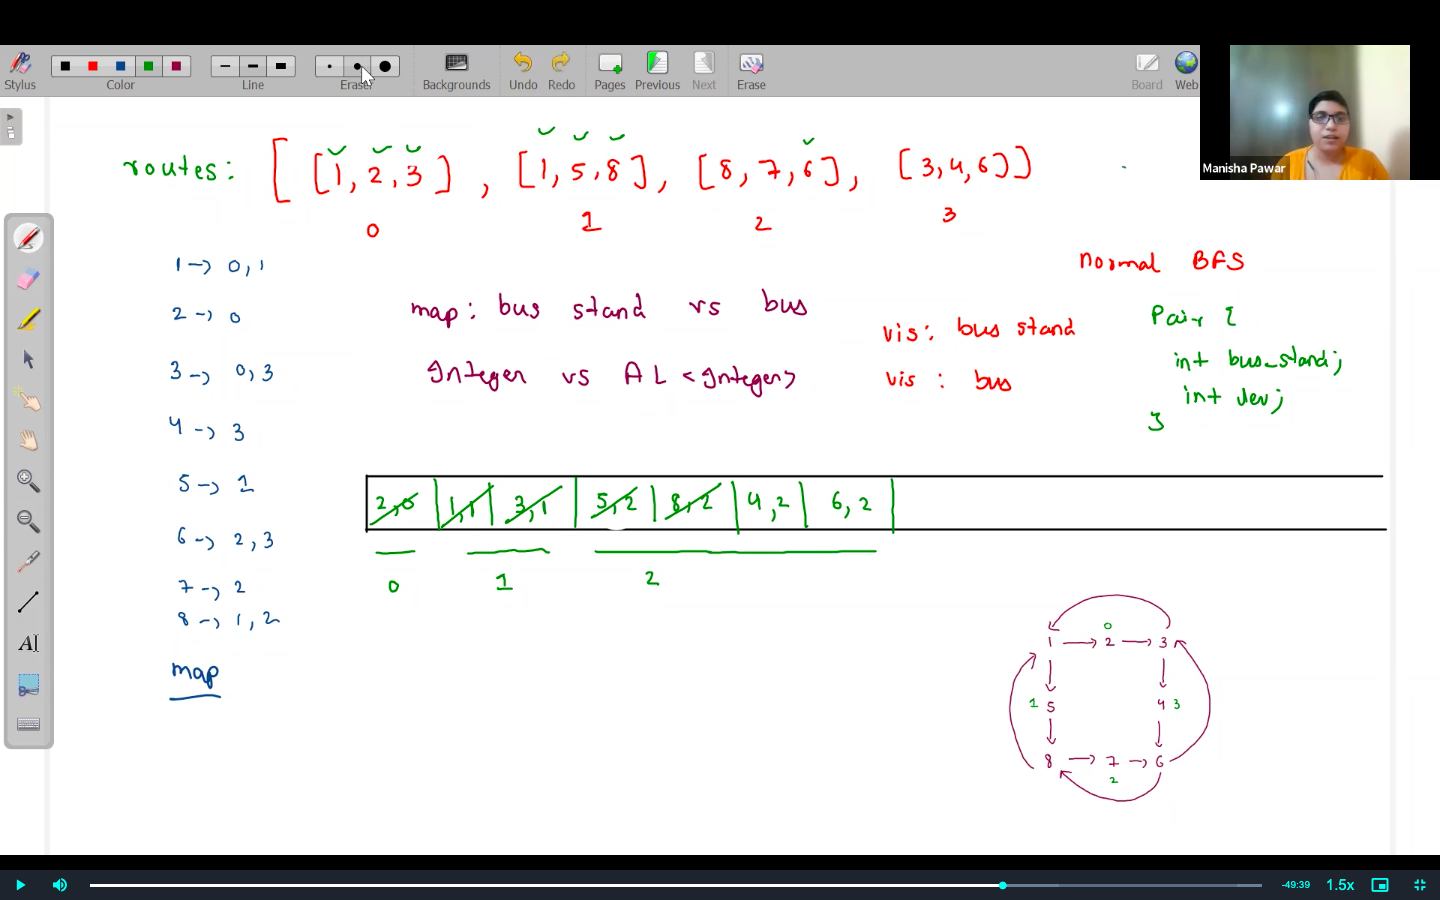 Stylus Color Line Eraser Backgrounds Undo Redo Pages Previous Next Erase Board Web
Manisha Pawar
routes: [ [1, 2, 3] , [1, 5, 8] , [8, 7, 6] , [3, 4, 6] ]
0 1 2 3
1 -> 0, 1
2 -> 0
3 -> 0, 3
4 -> 3
5 -> 1
6 -> 2, 3
7 -> 2
8 -> 1, 2
map
map: bus stand vs bus
Integer vs AL <Integer>
Normal BFS
vis: bus stand
vis : bus
Pair {
int bus_stand;
int lev;
}
2,0 1,1 3,1 5,2 8,2 4,2 6,2
0 1 2
0
1 -> 2 -> 3
1 5 4 3
8 -> 7 -> 6
2
AI
-49:39 1.5x